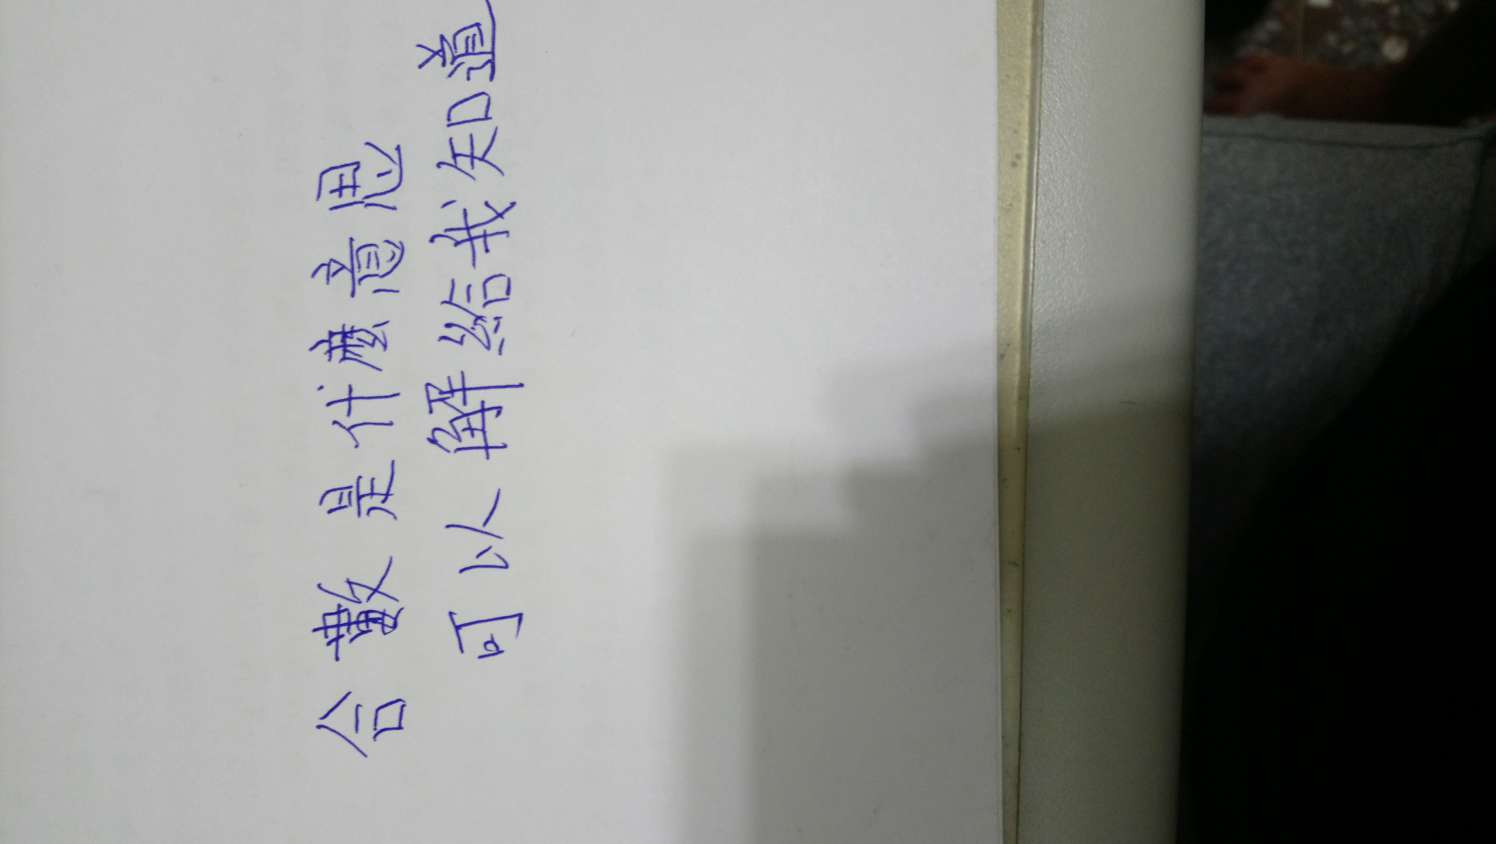 合數是什麼意思
可以解給我知道